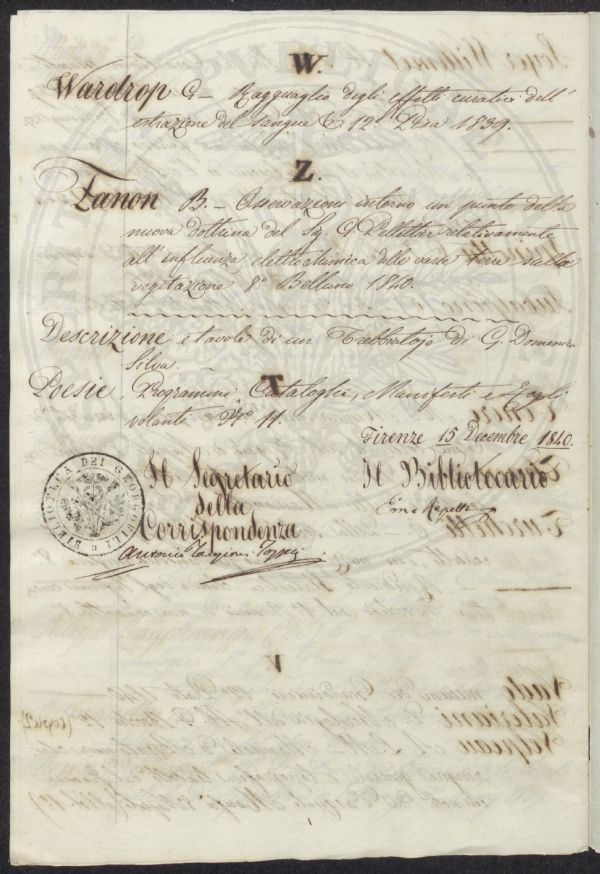 W.
Wardrop G – Ragguaglio degli effetti curativi dell'
estrazione del sangue & 12° Pisa 1839.
Z.
Zanon B. – Osservazioni intorno un punto della
nuova dottrina del Sig. G. relativamente
all'influenza elettrochimica delle varie terre sulla
vegetazione 8° Belluno 1840.
Descrizione e tavole di un Trebbiatojo di G. Domenico
Silva.
Poesie, Programmi, Cataloghi, Manifesti e Fogli
volanti N° 11.
Firenze 15 Decembre 1840.
Il Segretario
della
Corrispondenza
Antonio Targioni Tozzetti
Il Bibliotecario
Em. Repetti
BIBLIOTECA DEI GEORGOFILI